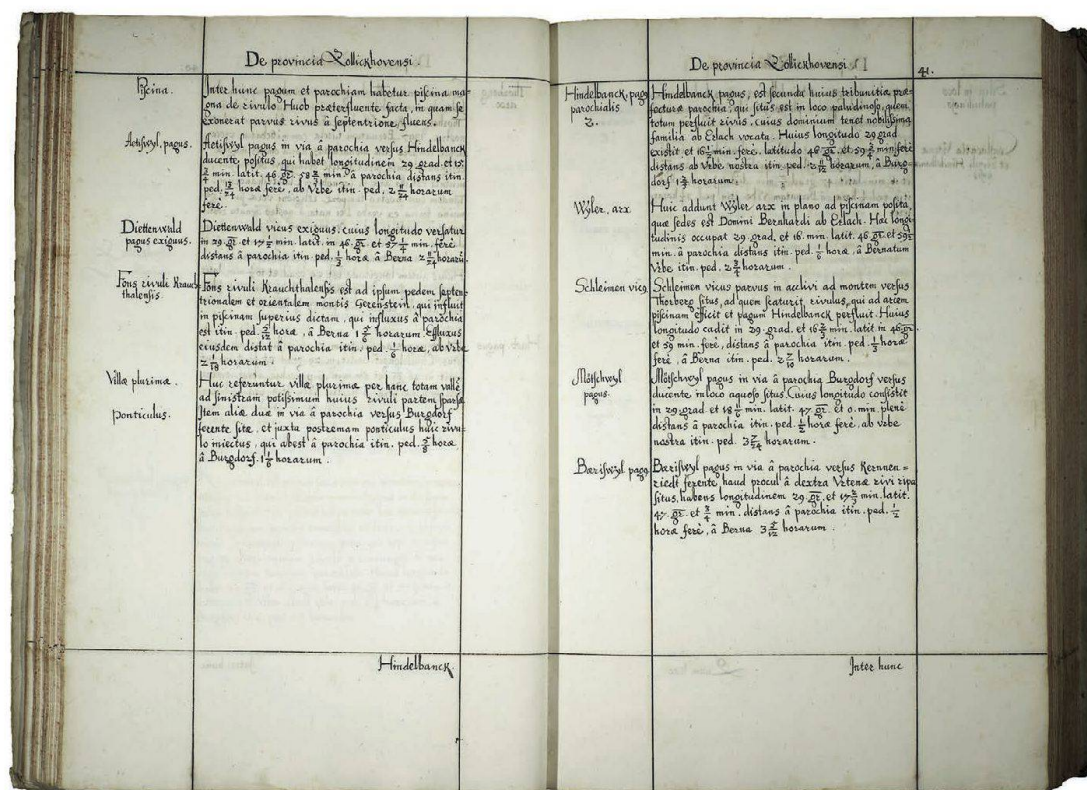 De provincia Zollickhovensi.
Piscina.
Inter hunc pagum et parochiam habetur piscina ma-
gna de rivulo Huob præterfluente facta, in quam se
exonerat parvus rivus â septentrione fluens.
Aetiswyl, pagus.
Aetiswyl pagus in via â parochia versus Hindelbanck
ducente positus, qui habet longitudinem 29 grad. et 15
min. latit. 46 gr. 58 min. â parochia distans itin.
ped. horæ ferè, ab Vrbe itin. ped. 2 11/24 horarum
ferè.
Diettenwald
pagus exiguus.
Diettenwald vicus exiguus, cuius longitudo versatur
in 29 gr. et 17 1/2 min. latit. in 46 gr. et 57 1/4 min. ferè
distans â parochia itin. ped. 1/3 horæ â Berna 2 11/24 horarū.
Fons rivuli Krauch-
thalensis.
Fons rivuli Krauchthalensis est ad ipsum pedem septen-
trionalem et orientalem montis Gerenstein, qui influit
in piscinam superius dictam, qui influxus â parochia
est itin. ped. 5/12 horæ, â Berna 1 5/6 horarum. Effluxus
eiusdem distat â parochia itin. ped. 1/6 horæ, ab Vrbe
2 1/18 horarum.
Villæ plurimæ.
Huc referuntur villæ plurimæ per hanc totam vallē
ad sinistram potissimum huius rivuli partem sparsæ
Item aliæ duæ in via â parochia versus Burgdorf
Ponticulus.
ferente sitæ, et juxta postremam ponticulus huic rivu-
lo iniectus, qui abest â parochia itin. ped. 5/8 horæ
â Burgdorf. 1 1/6 horarum.
Hindelbanck
De provincia Zollickhovensi
41.
Hindelbanck, pagus
parochialis
2.
Hindelbanck pagus, est secunda huius tribunitiæ præ-
fecturæ parochia, qui situs est in loco paludinoso, quem
totum perfluit rivus, cuius dominium tenet nobilissima
familia ab Erlach vocata. Huius longitudo 29 grad
existit et 16 1/2 min. ferè. latitudo 46 gr. et 59 min. ferè
distans ab Vrbe nostra itin. ped. 2 11/12 horarum, â Burg-
dorf 1 horarum.
Wyler, arx
Huic addunt Wyler arx in plano ad piscinam posita,
quæ sedes est Domini Bernhardi ab Erlach. Hæc longi-
tudinis occupat 29 grad. et 16 min. latit. 46 gr. et 59
min. â parochia distans itin. ped. 1/6 horæ, â Bernatum
Vrbe itin. ped. 2 3/4 horarum.
Schleimen vicus
Schleimen vicus parvus in acclivi ad montem versus
Thorberg situs, ad quem scaturit rivulus, qui ad arcem
piscinam efficit et pagum Hindelbanck perfluit. Huius
longitudo cadit in 29 grad. et 16 min. latit in 46 gr.
et 59 min. ferè, distans â parochia itin. ped. 1/3 horæ
ferè, â Berna itin. ped. 2 7/10 horarum.
Mötschwyl
pagus.
Mötschwyl pagus in via â parochia Burgdorf versus
ducente in loco aquoso situs. Cuius longitudo consistit
in 29 grad et 18 1/6 min. latit. 47 gr. et 0. min. plenè
distans â parochia itin. ped. 1/2 horæ ferè, ab Vrbe
nostra itin. ped. 3 7/24 horarum.
Bæriswyl pagus
Bæriswyl pagus in via â parochia versus Kernnen-
riedt ferente haud procul â dextra Vrtenæ rivi ripa
situs, habens longitudinem 29 gr. et 17 min. latit.
47 gr. et 3/4 min. distans â parochia itin. ped. 1/2
horæ ferè, â Berna 3 5/12 horarum.
Inter hunc